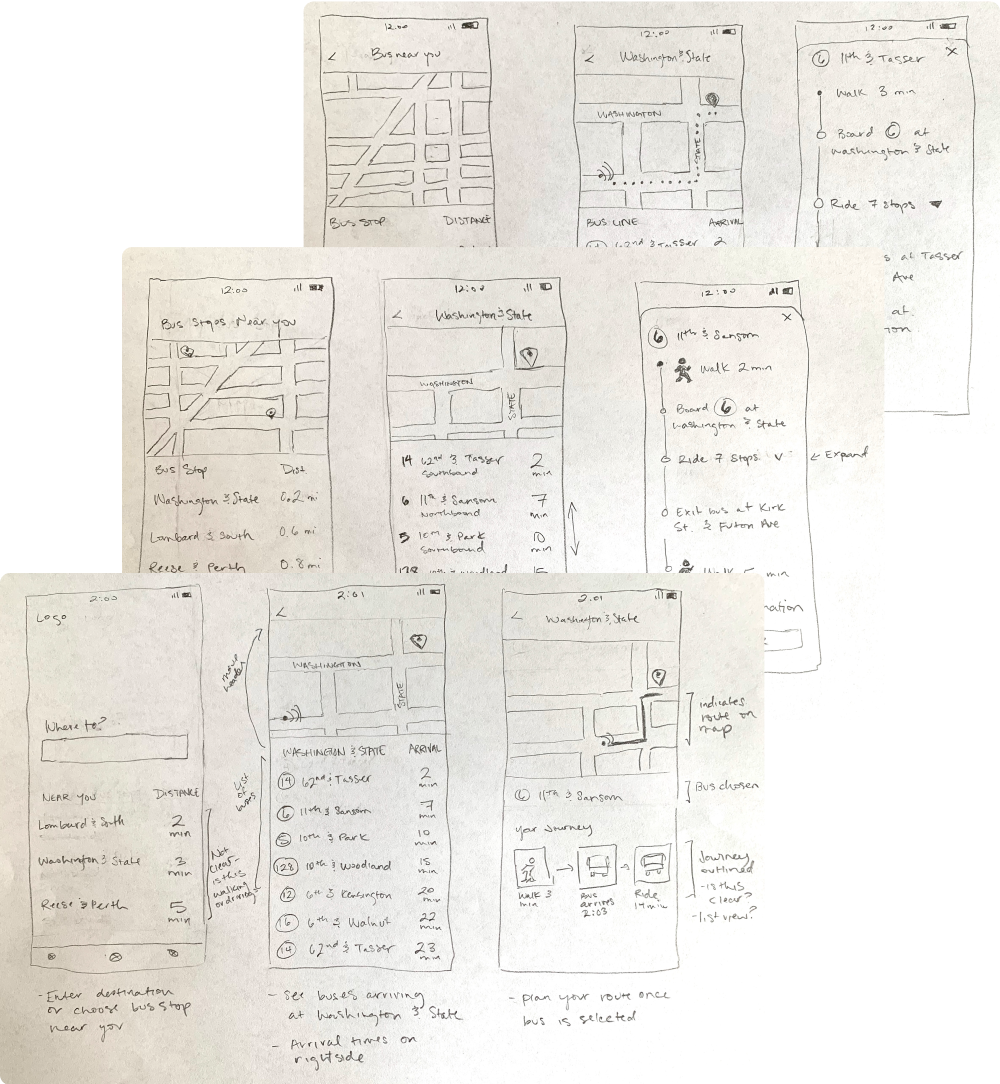 12:00
< Bus near you
BUS STOP DISTANCE
12:00
< Washington & State
WASHINGTON
STATE
BUS LINE ARRIVAL
62nd & Tasser 2
12:00
X
6 11th & Tasser
Walk 3 min
Board 6 at
Washington & State
Ride 7 stops
at Tasser
Ave
at
12:00
Bus Stops Near you
Bus Stop Dist
Washington & State 0.2 mi
Lombard & South 0.6 mi
Reese & Perth 0.8 mi
12:00
< Washington & State
WASHINGTON
STATE
14 62nd & Tasser 2
Southbound min
6 11th & Sansom 7
Northbound min
5 10th & Park 10
Southbound min
128
12:00
X
6 11th & Sansom
Walk 2 min
Board 6 at
Washington & State
Ride 7 Stops ← Expand
Exit bus at Kirk
St. & Futon Ave
Walk min
nation
2:00
Logo
Where to?
NEAR YOU DISTANCE
Lombard & South 2
min
Washington & State 3
min
Reese & Perth 5
min
Not
clear -
is this
walking
or driving
- Enter destination
or choose bus stop
near you
move
header
List
of
buses
2:01
<
WASHINGTON
STATE
WASHINGTON & STATE ARRIVAL
14 62nd & Tasser 2
min
6 11th & Sansom 7
min
5 10th & Park 10
min
128 10th & Woodland 15
min
12 6th & Kensington 20
min
16 6th & Walnut 22
min
14 62nd & Tasser 23
min
- See buses arriving
at Washington & State
- Arrival times on
right side
2:01
< Washington & State
6 11th & Sansom
Your Journey
Walk 3
min
Bus
arrives
2:03
Ride
14 min
indicates
route on
map
Bus chosen
Journey
outlined
- is this
clear?
- list view?
- plan your route once
bus is selected